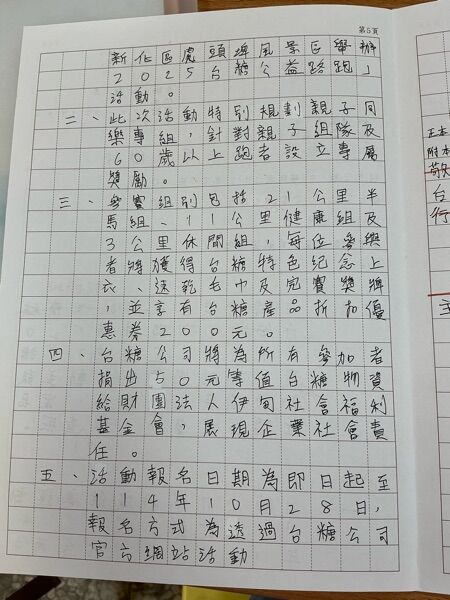 第5頁
新化區虎頭埤風景區舉辦「
2025台糖公益路跑」
活動。
二、此次活動特別規劃親子同
樂專組,針對親子組隊及
60歲以上跑者設立專屬
獎勵。
三、參賽組別包括21公里半
馬組、11公里健康組及
3公里休閒組,每位參與
者將獲得台糖特色紀念上
衣、速乾毛巾及完賽獎牌
,並享有台糖產品折扣優
惠券200元。
四、台糖公司將為所有參加者
捐出50元等值白糖物資
給財團法人伊甸社會福利
基金會,展現企業社會責
任。
五、活動報名日期為即日起至
114年10月28日,
報名方式為透過台糖公司
官方網站活動
正本
附本
敬
台
行